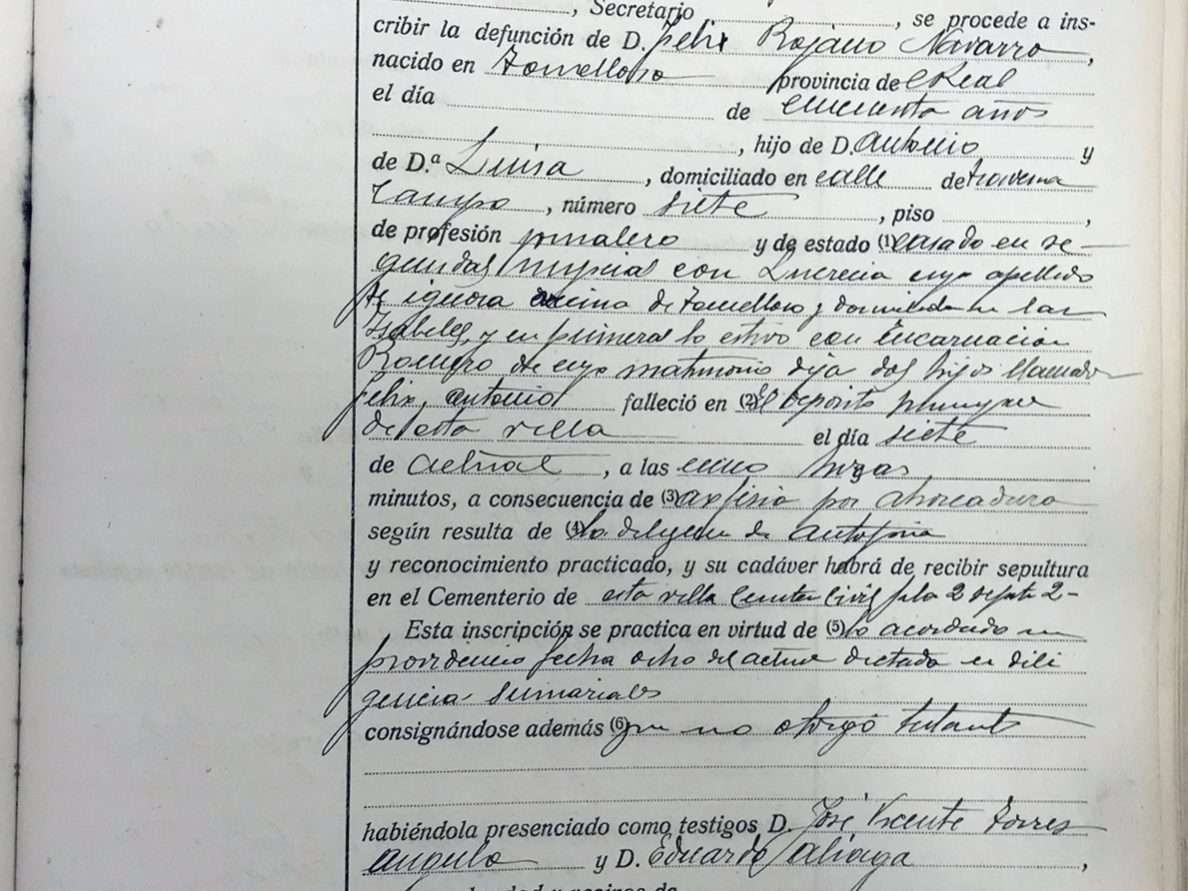 , Secretario , se procede a ins-
cribir la defunción de D. Felix Rojano Navarro,
nacido en Tomelloso provincia de C Real
el día de cincuenta años
, hijo de D. Antonio y
de D.ª Luisa, domiciliado en calle de travesia
Campo, número siete, piso ,
de profesión jornalero y de estado (1) casado en se-
gundas nupcias con Lucrecia cuyo apellido
se ignora vecina de Tomelloso y domiciliada en las
Isabeles, y en primeras lo estuvo con Encarnación
Romero de cuyo matrimonio deja dos hijos llamados
Felix, Antonio falleció en (2) El deposito
de esta villa el día siete
de actual, a las cinco horas
minutos, a consecuencia de (3) axfisia por ahorcadura
según resulta de (4) la diligencia de autopsia
y reconocimiento practicado, y su cadáver habrá de recibir sepultura
en el Cementerio de esta villa Cementerio Civil fila 2 sept 2-
Esta inscripción se practica en virtud de (5) lo acordado en
providencia fecha ocho del actual dictada en dili
gencia sumariales
consignándose además (6) que no otorgó
habiéndola presenciado como testigos D. José Vicente Torres
Angulo y D. Eduardo Aliaga,